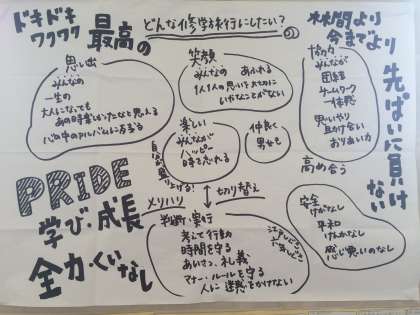 ドキドキ
ワクワク
最高の
どんな修学旅行にしたい?
林間より
今までより
先ぱいに負けない
思い出
みんなの
一生の
大人になっても
あの時楽しかったなと思える
心の中のアルバムに
笑顔
みんなの あふれる
1人1人の思いを大切に
いやなことがない
協力
みんなが
団結
チームワーク
一体感
思いやり
助け合い
おりあい力
高め合う
楽しい
みんなが
ハッピー
時を忘れる
仲良く
男女も
PRIDE
学び・成長
全力・くいなし
メリハリ
切り替え
判断・実行
考えて行動
時間を守る
あいさつ、礼義
マナー・ルールを守る
人に迷惑をかけない
安全
けがなし
平和
けんかなし
感じ悪いのなし